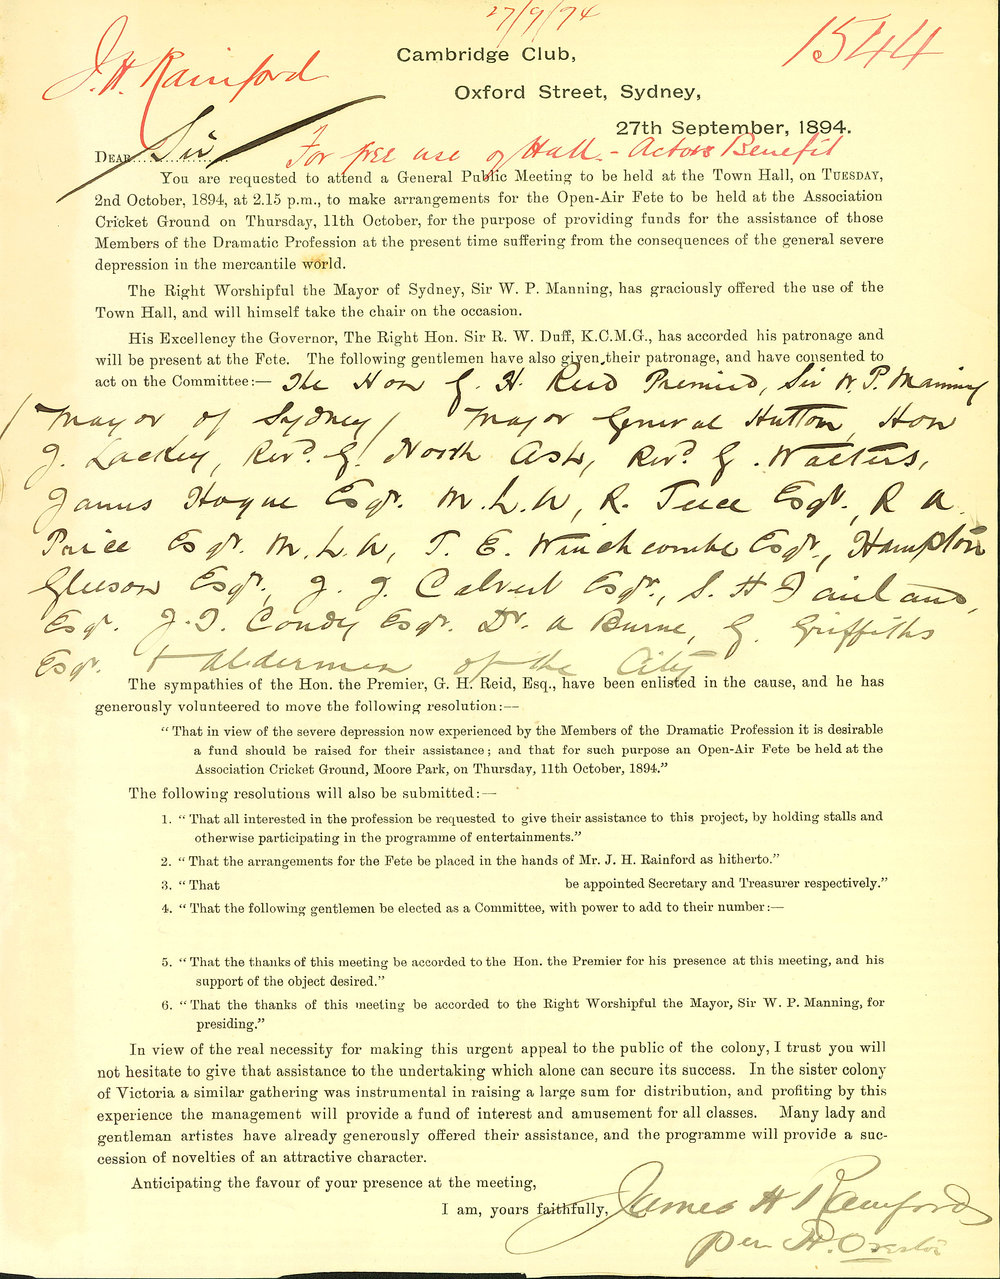 27/9/94
J. H. Rainford
1544
Cambridge Club,
Oxford Street, Sydney,
27th September, 1894.
DEAR Sir
For free use of Hall. - Actors Benefit
You are requested to attend a General Public Meeting to be held at the Town Hall, on TUESDAY,
2nd October, 1894, at 2.15 p.m., to make arrangements for the Open-Air Fete to be held at the Association
Cricket Ground on Thursday, 11th October, for the purpose of providing funds for the assistance of those
Members of the Dramatic Profession at the present time suffering from the consequences of the general severe
depression in the mercantile world.
The Right Worshipful the Mayor of Sydney, Sir W. P. Manning, has graciously offered the use of the
Town Hall, and will himself take the chair on the occasion.
His Excellency the Governor, The Right Hon. Sir R. W. Duff, K.C.M.G., has accorded his patronage and
will be present at the Fete. The following gentlemen have also given their patronage, and have consented to
act on the Committee:— The Hon G. H. Reid Premier, Sir W. P. Manning
/Mayor of Sydney/ Major General Hutton, Hon
J. Lackey, Revd. G. North Ash, Revd. G. Walters,
James Hogue Esqr. M.L.A, R. Teece Esqr., R A.
Price Esqr. M.L.A, T. E. Winchcombe Esqr., Hampton
Gleeson Esqr, J. J. Calvert Esqr., S. H Fairland,
Esqr. J. T. Condy Esqr. Dr. A Burne, G. Griffiths
Esqr. + Aldermen of the City
The sympathies of the Hon. the Premier, G. H. Reid, Esq., have been enlisted in the cause, and he has
generously volunteered to move the following resolution:—
“That in view of the severe depression now experienced by the Members of the Dramatic Profession it is desirable
a fund should be raised for their assistance; and that for such purpose an Open-Air Fete be held at the
Association Cricket Ground, Moore Park, on Thursday, 11th October, 1894.”
The following resolutions will also be submitted:—
1. “That all interested in the profession be requested to give their assistance to this project, by holding stalls and
otherwise participating in the programme of entertainments.”
2. “That the arrangements for the Fete be placed in the hands of Mr. J. H. Rainford as hitherto.”
3. “That be appointed Secretary and Treasurer respectively.”
4. “That the following gentlemen be elected as a Committee, with power to add to their number:—
5. “That the thanks of this meeting be accorded to the Hon. the Premier for his presence at this meeting, and his
support of the object desired.”
6. “That the thanks of this meeting be accorded to the Right Worshipful the Mayor, Sir W. P. Manning, for
presiding.”
In view of the real necessity for making this urgent appeal to the public of the colony, I trust you will
not hesitate to give that assistance to the undertaking which alone can secure its success. In the sister colony
of Victoria a similar gathering was instrumental in raising a large sum for distribution, and profiting by this
experience the management will provide a fund of interest and amusement for all classes. Many lady and
gentleman artistes have already generously offered their assistance, and the programme will provide a suc-
cession of novelties of an attractive character.
Anticipating the favour of your presence at the meeting,
I am, yours faithfully,
James H Rainford
per H.